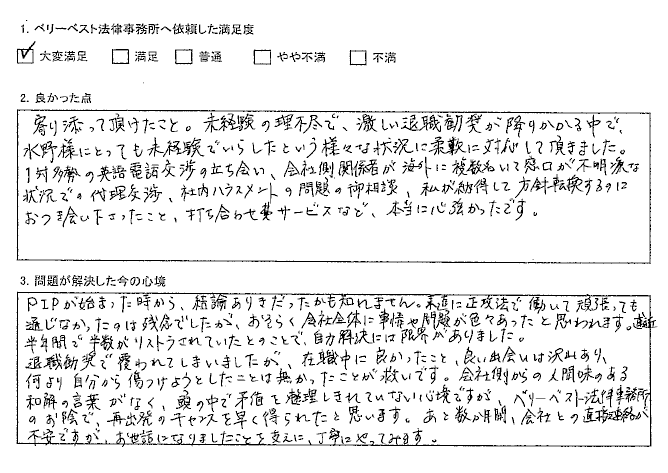 1. ベリーベスト法律事務所へ依頼した満足度
大変満足 満足 普通 やや不満 不満
2. 良かった点
寄り添って頂けたこと。未経験の理不尽で、激しい退職勧奨が降りかかる中で、
水野様にとっても未経験でいらしたという様々な状況に柔軟に対応して頂きました。
1対多数の英語電話交渉の立ち会い、会社側関係者が海外に複数名いて窓口が不明瞭な
状況での代理交渉、社内ハラスメントの問題の御相談、私が納得して方針転換するのに
おつき合い下さったこと、打ち合わせ費サービスなど、本当に心強かったです。
3. 問題が解決した今の心境
PIPが始まった時から、結論ありきだったかも知れません。素直に正攻法で働いて頑張っても
通じなかったのは残念でしたが、おそらく会社全体に事情や問題が色々あったと思われます。直近
半年間で半数がリストラされていたとのことで、自分解決には限界がありました。
退職勧奨で覆われてしまいましたが、在職中に良かったこと、良い出会いは沢山あり、
何より自分から傷つけようとしたことは無かったことが救いです。会社側からの人間味のある
和解の言葉がなく、頭の中で矛盾を整理しきれていない心境ですが、ベリーベスト法律事務所
のお陰で、再出発のチャンスを早く得られたと思います。あと数か月間、会社との直接連絡が
不安ですが、お世話になりましたことを支えに、丁寧にやってみます。